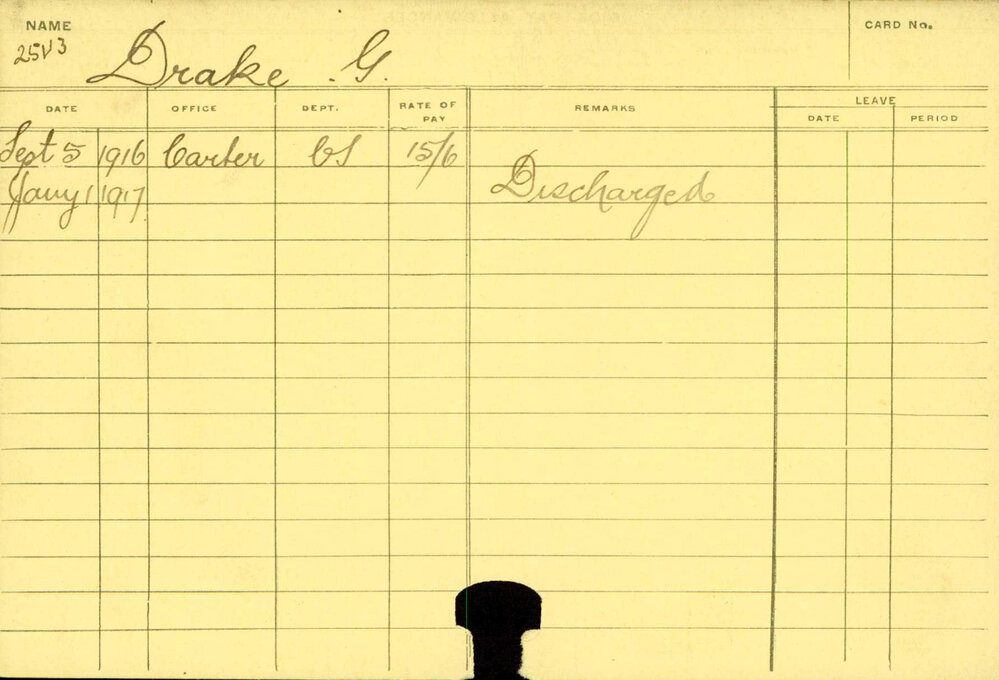 NAME
CARD No.
25V3
Drake G.
DATE OFFICE DEPT. RATE OF PAY REMARKS LEAVE
DATE PERIOD
Sept 5 1916 Carter CS 15/6
Jany 1 1917 Discharged